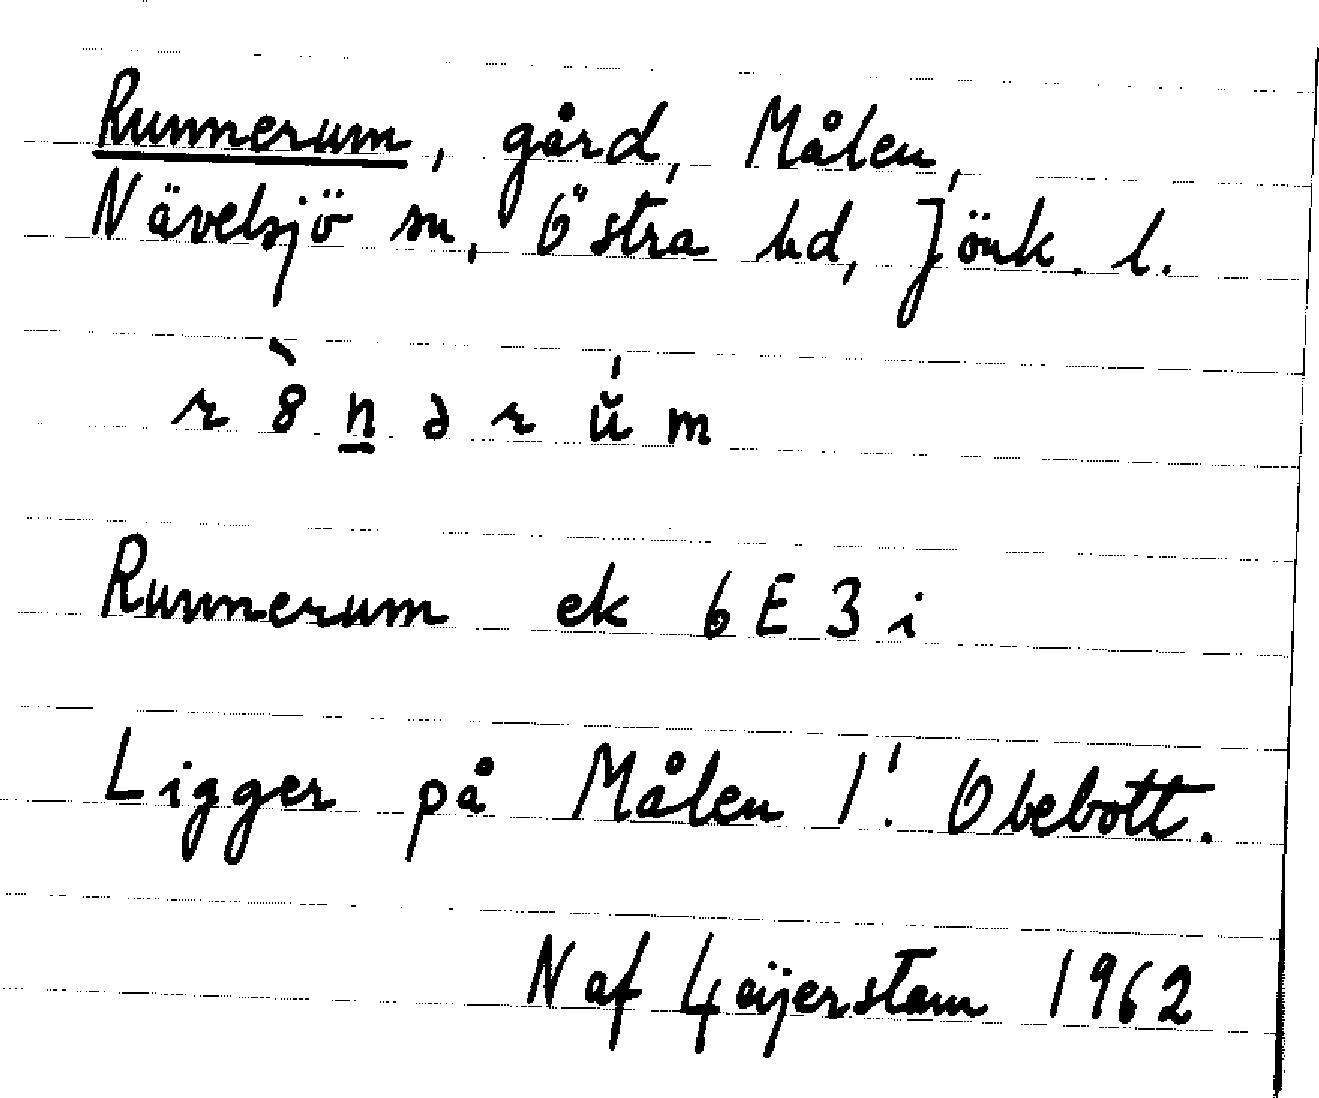 Runnerum, gård, Målen,
Nävelsjö sn, Östra hd, Jönk. l.
r ȣ̀ n̲ ə r ŭ́ m
Runnerum ek 6E3i
Ligger på Målen 1! Obebott.
N af Geijerstam 1962